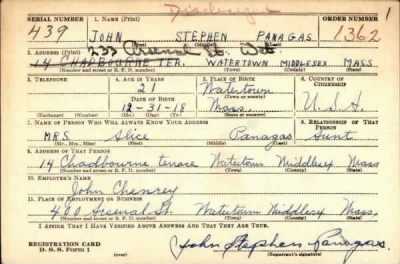 Discharged
1
SERIAL NUMBER 1. NAME (Print) ORDER NUMBER
439 JOHN STEPHEN PANAGAS 1362
(First) (Middle) (Last)
233 Arsenal St. Wat.
2. ADDRESS (Print)
14 CHADBOURNE TER. WATERTOWN MIDDLESEX MASS
(Number and street or R. F. D. number) (Town) (County) (State)
3. TELEPHONE 4. AGE IN YEARS 5. PLACE OF BIRTH 6. COUNTRY OF CITIZENSHIP
21 Watertown
(Town or county)
DATE OF BIRTH
12-31-18 Mass. U.S.A.
(Exchange) (No.) (Mo.) (Day) (Yr.) (State or country)
7. NAME OF PERSON WHO WILL ALWAYS KNOW YOUR ADDRESS 8. RELATIONSHIP OF THAT PERSON
MRS. Alice Panagas Aunt
(Mr., Mrs., Miss) (First) (Middle) (Last)
9. ADDRESS OF THAT PERSON
14 Chadbourne terrace Watertown Middlesex Mass
(Number and street or R. F. D. number) (Town) (County) (State)
10. EMPLOYER'S NAME
John Chenrey
11. PLACE OF EMPLOYMENT OR BUSINESS
400 Arsenal St. Watertown Middlesex Mass.
(Number and street or R. F. D. number) (Town) (County) (State)
I AFFIRM THAT I HAVE VERIFIED ABOVE ANSWERS AND THAT THEY ARE TRUE.
REGISTRATION CARD
D. S. S. Form 1 John Stephen Panagas
(Registrant's signature)